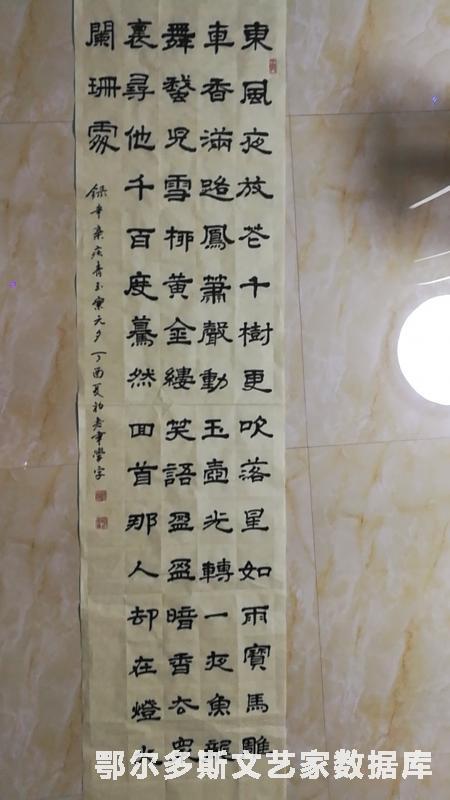 東風夜放花千樹更吹落星如雨寶馬雕
車香滿路鳳簫聲動玉壺光轉一夜魚龍
舞蛾兒雪柳黃金縷笑語盈盈暗香去衆
裏尋他千百度驀然回首那人却在燈火
闌珊處
錄辛棄疾青玉案元夕丁酉夏初
鄂尔多斯文艺家数据库